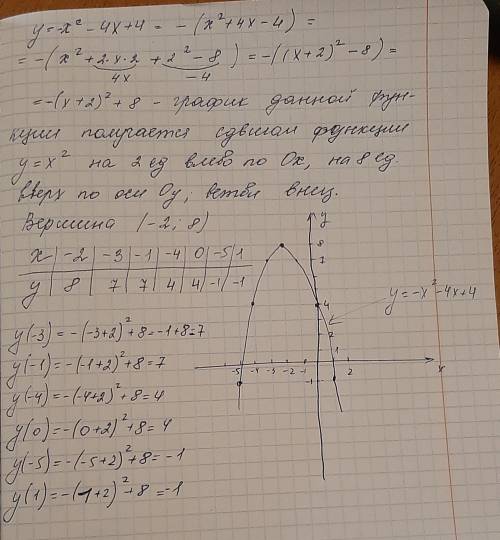 y=-x²-4x+4 = -(x²+4x-4) =
= -(x²+2·x·2+2²-8) = -((x+2)²-8) =
4x -4
= -(x+2)²+8 - график данной фун-
кции получается сдвигом функции
y=x² на 2 ед влево по Ox, на 8 ед.
вверх по оси Oy, ветви вниз.
Вершина (-2; 8)
x -2 -3 -1 -4 0 -5 1
y 8 7 7 4 4 -1 -1
y(-3) = -(-3+2)²+8=-1+8=7
y(-1) = -(-1+2)²+8=7
y(-4) = -(-4+2)²+8=4
y(0) = -(0+2)²+8=4
y(-5) = -(-5+2)²+8=-1
y(1) = -(1+2)²+8=-1
y
8
7
4
y=-x²-4x+4
2
1
-5 -4 -3 -2 -1 2 x
-1